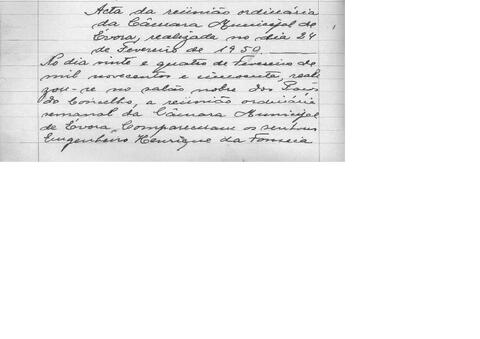 Acta da reünião ordinária
da Câmara Municipal de
Évora, realizada no dia 24
de Fevereiro de 1950.
No dia vinte e quatro de Fevereiro de
mil novecentos e cincoenta, reali
zou-se no salão nobre dos Paços
do Concelho, a reünião ordinária
semanal da Câmara Municipal
de Évora. Compareceram os senhores
Engenheiro Henrique da Fonseca